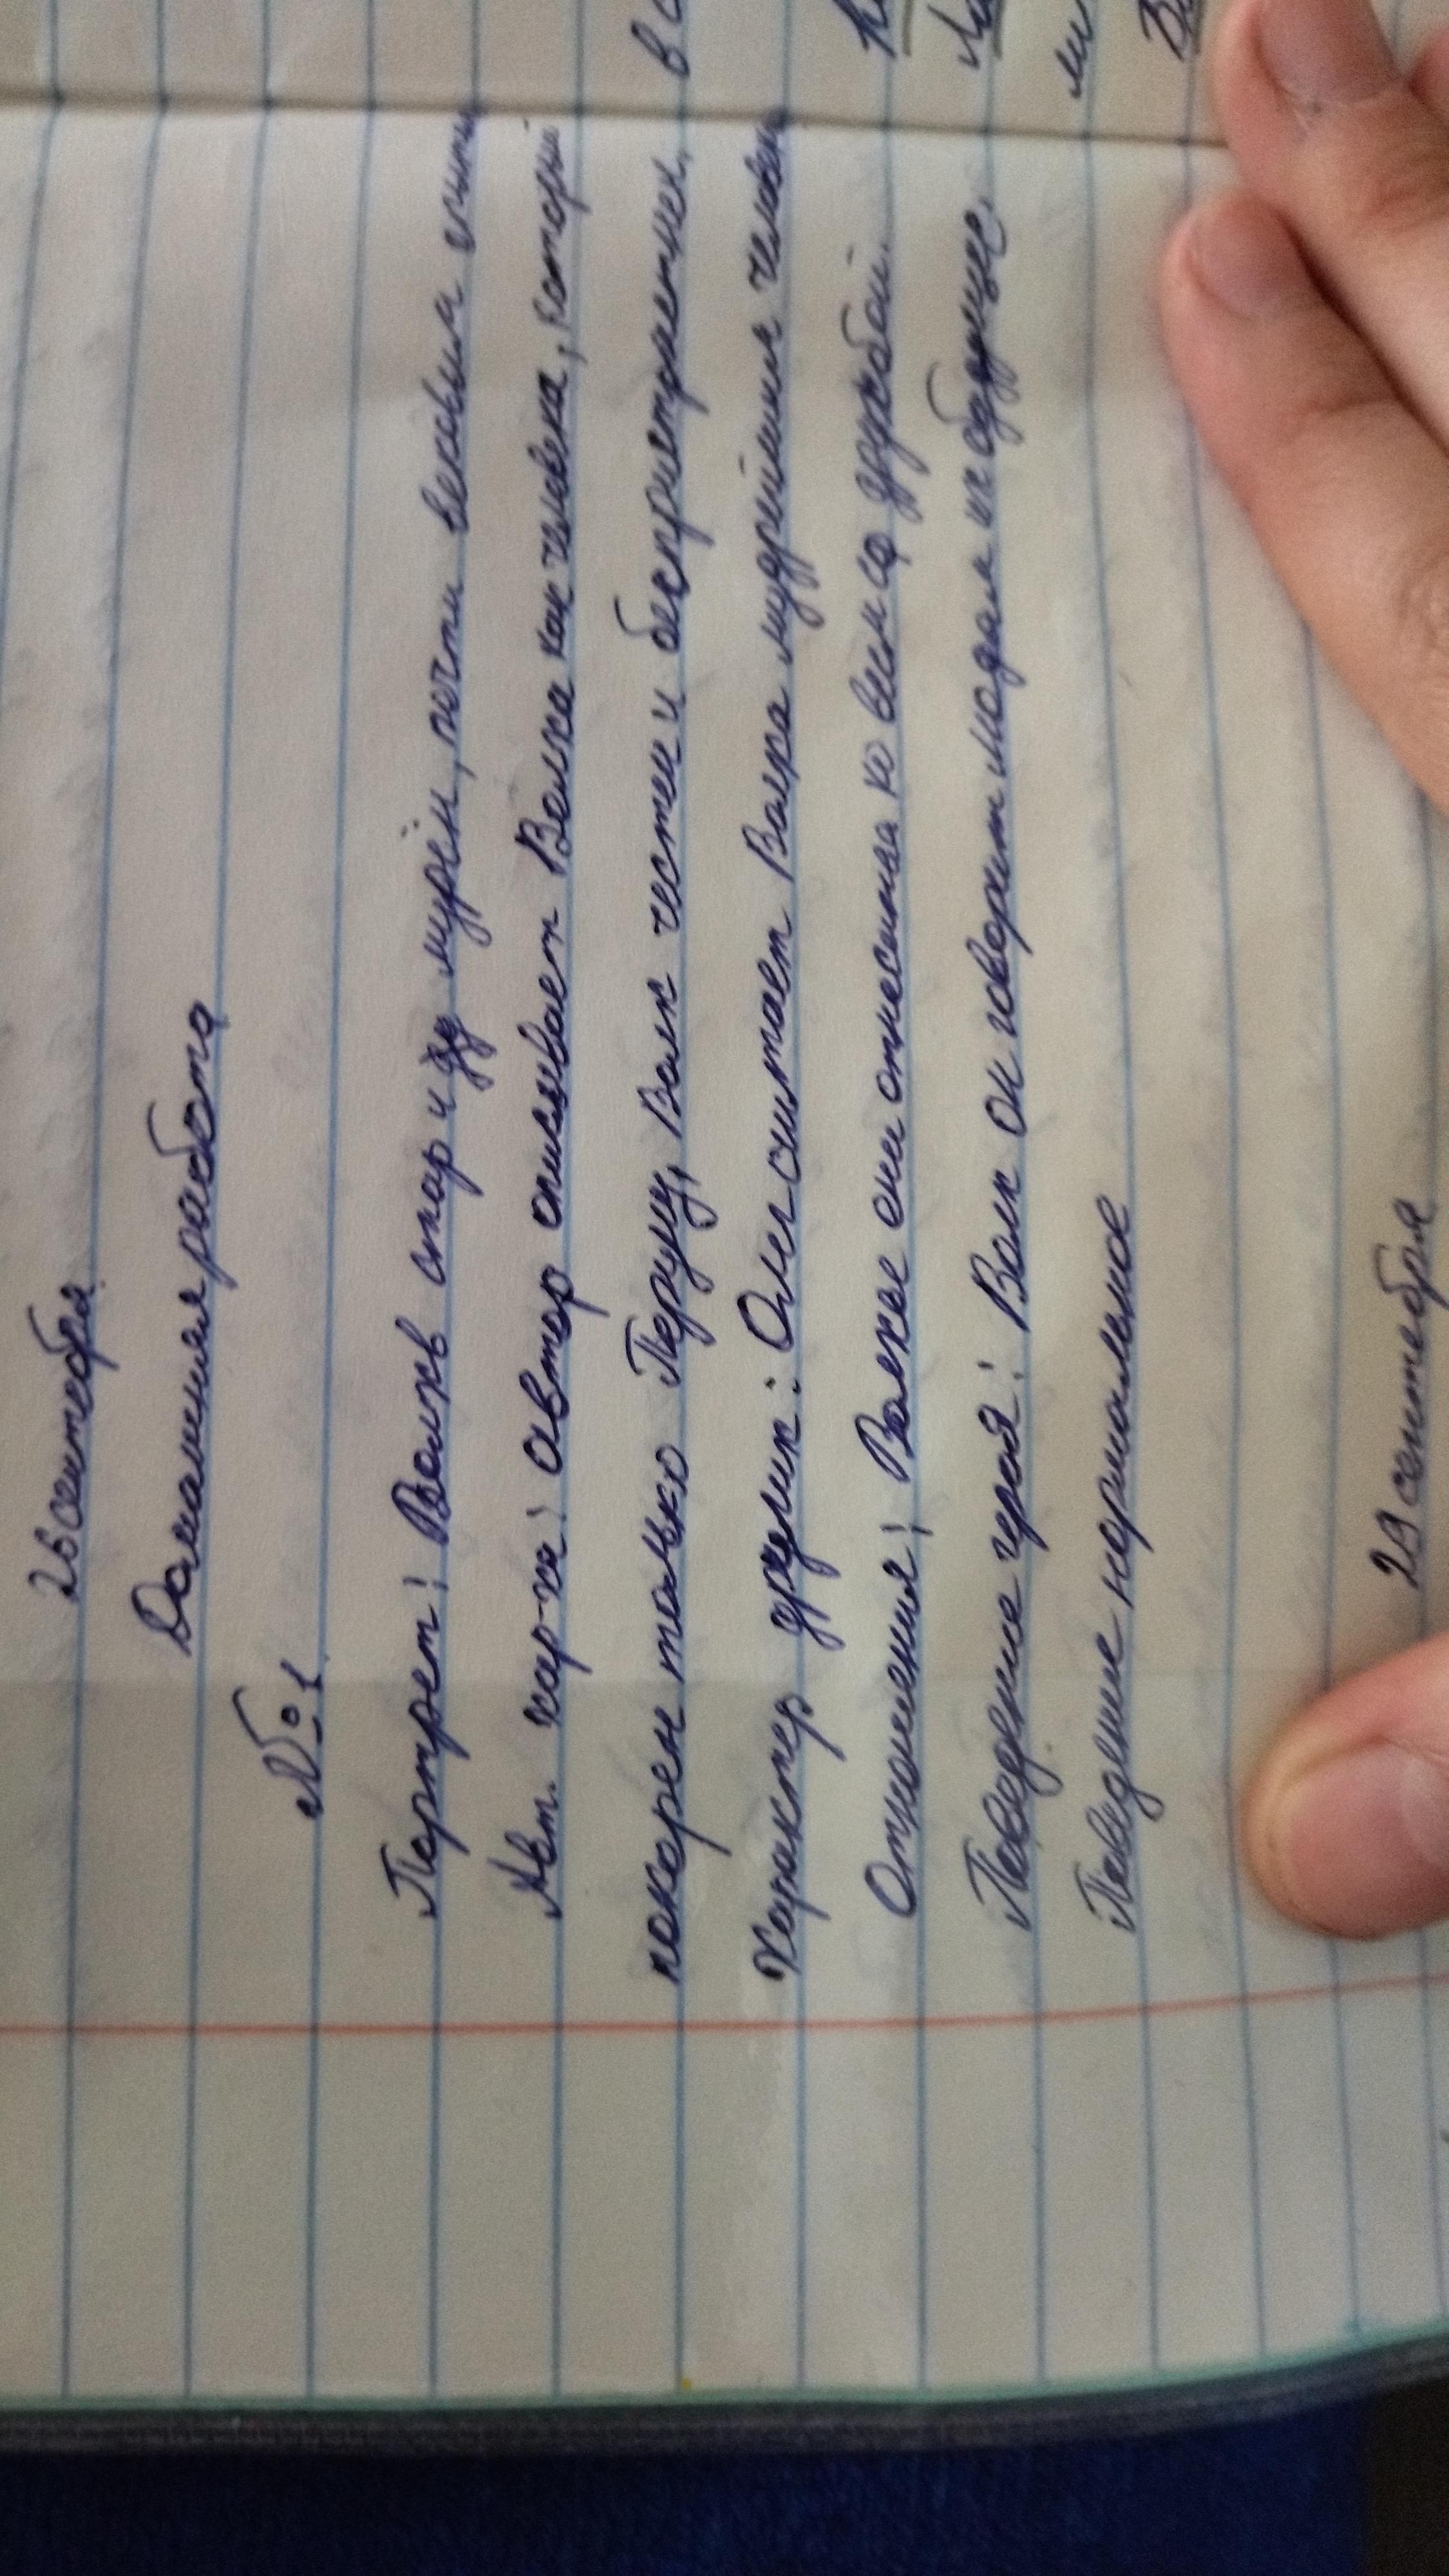 26 сентября.
Домашняя работа
№1.
Портрет: Волхв стар и мудрён, почти
Авт. хар-ка: автор описывает Волхва как человека, который
покорен только Перуну, Волк честен и беспристрастен,
Характер уделик: Олег считает Волхра мудрейшим человек
Отношения: Волхве они отнесытса ко всем со дружбой.
Поведение героя: Волк он говорит людям их будущее.
Поведение нормальное
29 сентября
в с
ли